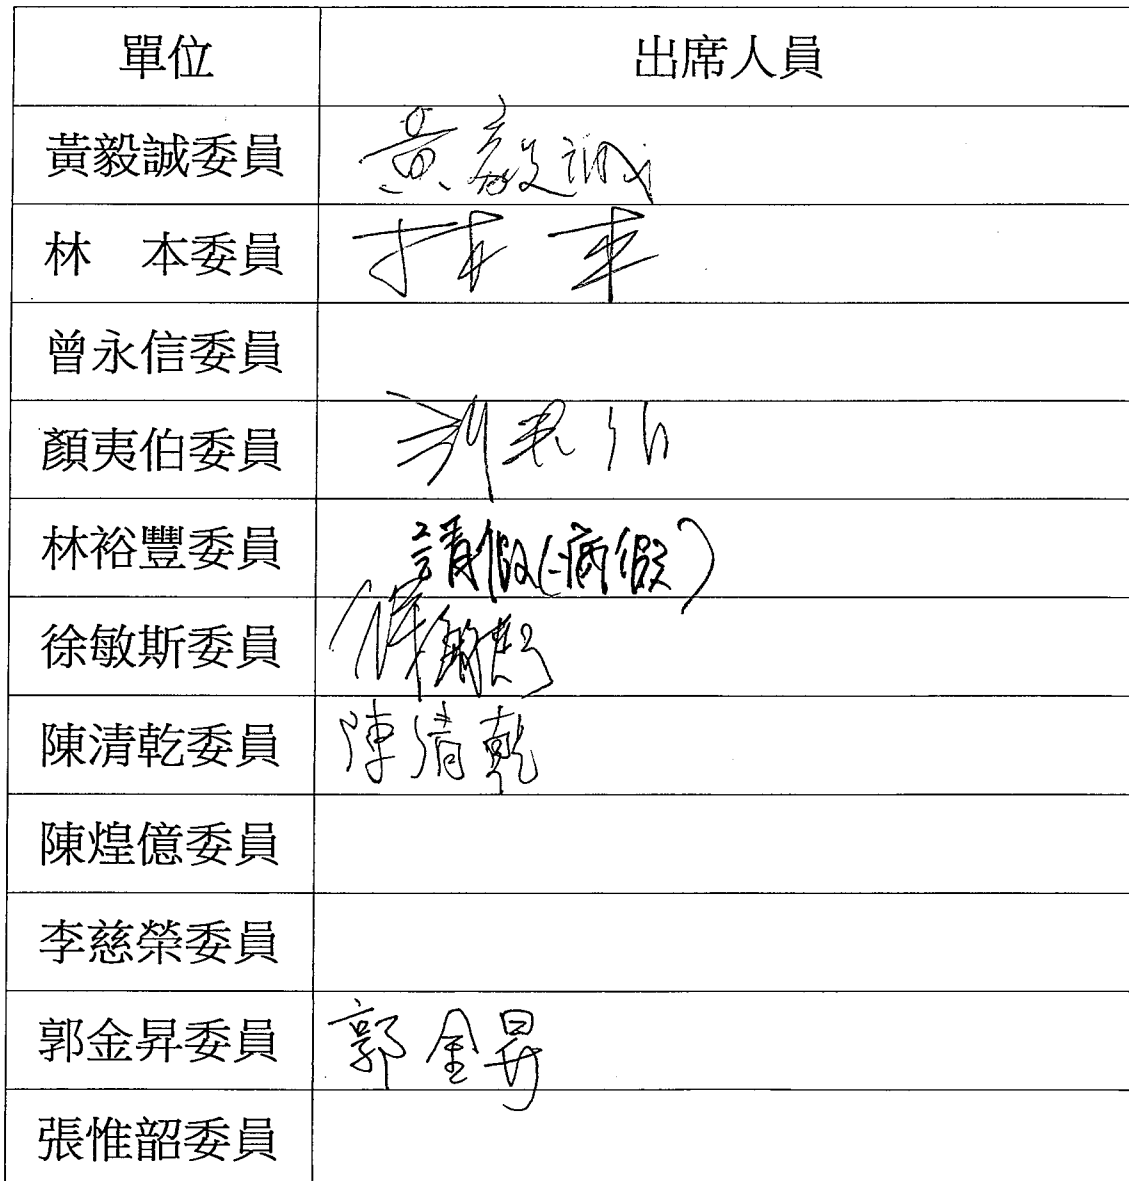 單位 出席人員
黃毅誠委員 黃毅誠
林 本委員 林本
曾永信委員
顏夷伯委員
林裕豐委員 請假(病假)
徐敏斯委員
陳清乾委員 陳清乾
陳煌億委員
李慈榮委員
郭金昇委員 郭金昇
張惟韶委員